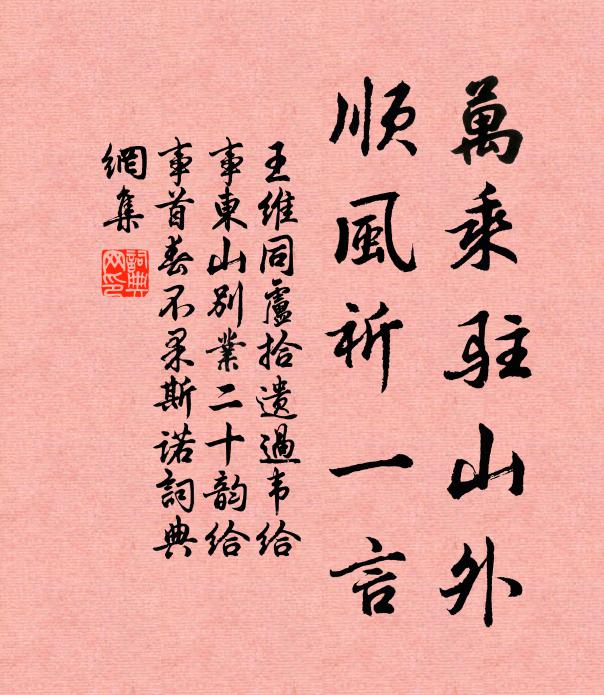 萬乘駐山外
順風祈一言
王維同盧拾遺過韦給
事東山別業二十韵給
事首春不果斯诺詞典
網集
詞典
网印